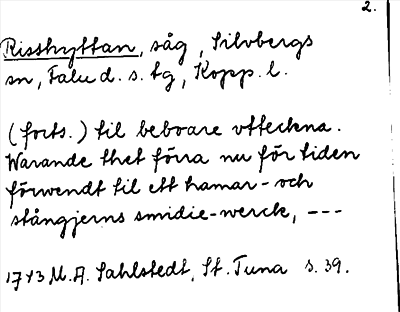 2.
Risshyttan, såg, Silvbergs
sn, Falu d. s. tg, Kopp. l.
(forts.) til beboare vtteckna.
Warande thet förra nu för tiden
förwendt til ett hamar- och
stångjerns smidie-werck, ---
1743 M.A. Sahlstedt, St. Tuna s. 39.